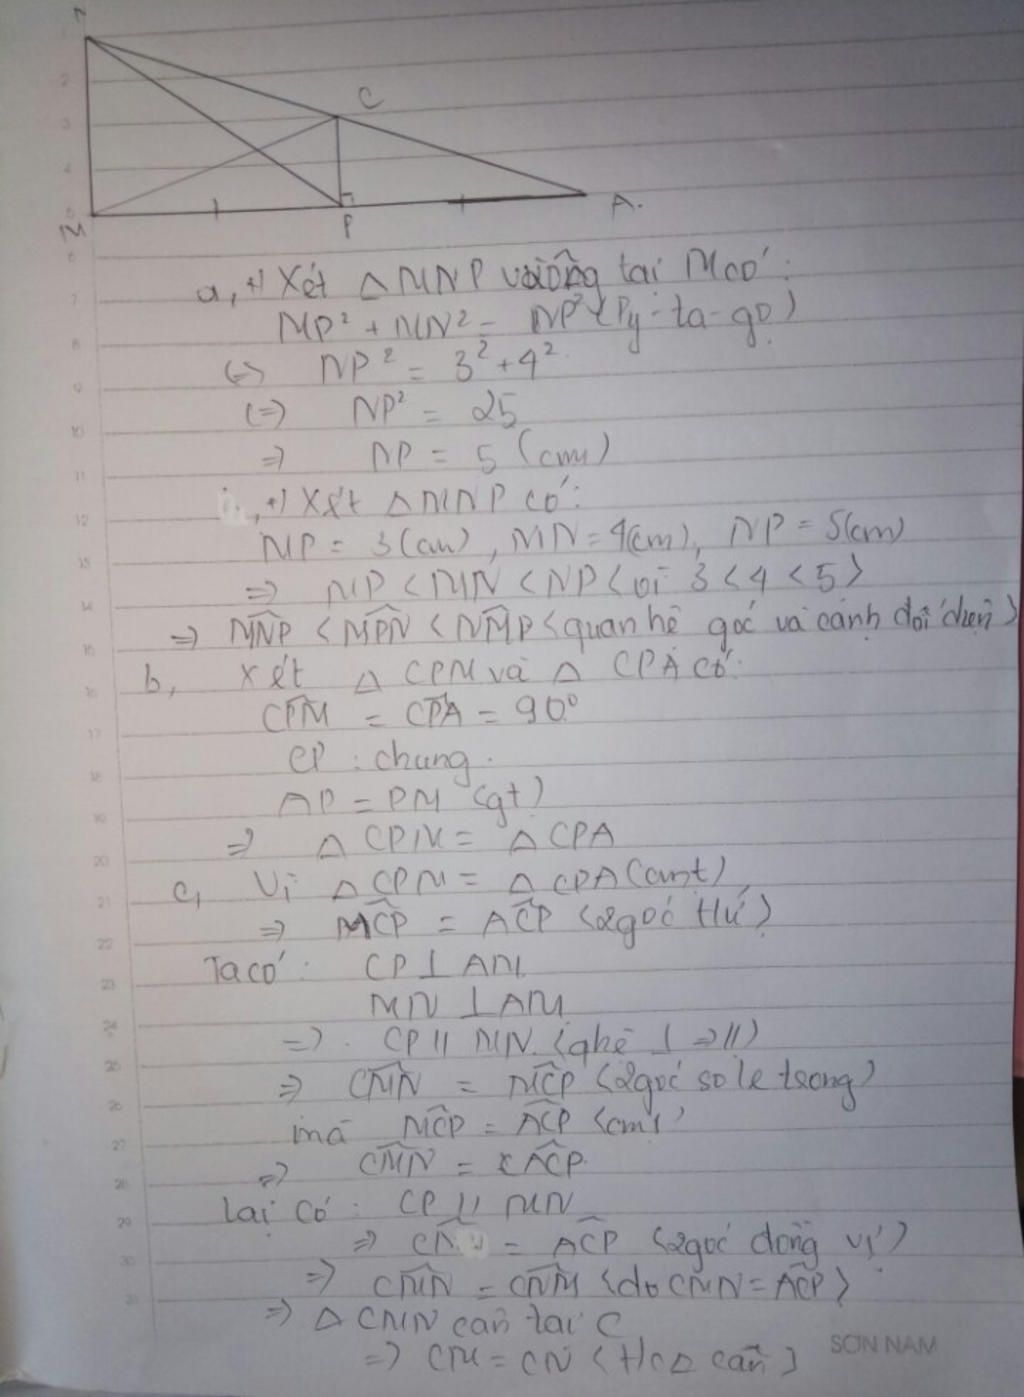 N
C
M
P
A.
a, +) Xét △ MNP vuông tại M có:
MP² + MN² = NP² (Py-ta-go)
(=) NP² = 3² + 4².
(=) NP² = 25
=) NP = 5 (cm)
+) Xét △ MNP có:
MP = 3 (cm), MN = 4(cm), NP = 5(cm)
=) MP < MN < NP < vì 3 < 4 < 5 >
=) M̂NP < M̂PN < N̂MP < quan hệ góc và cạnh đối diện )
b, Xét △ CPM và △ CPA có:
ĈPM = ĈPA = 90°
CP : chung.
AP = PM (gt)
=) △ CPM = △ CPA
c, Vì △ CPM = △ CPA (cmt)
=) MĈP = AĈP (2 góc t/ứ)
Ta có: CP ⊥ AM
MN ⊥ AM
=) CP // MN. (qhệ ⊥ => //)
=) CM̂N = MĈP (2 góc so le trong)
mà MĈP = AĈP (cmt)
=) CM̂N = AĈP.
Lại có: CP // MN
=) = AĈP (2 góc đồng vị)
=) CM̂N = CN̂M (do CM̂N = AĈP)
=) △ CMN cân tại C
=) CM = CN (t/c △ cân)
SƠN NAM